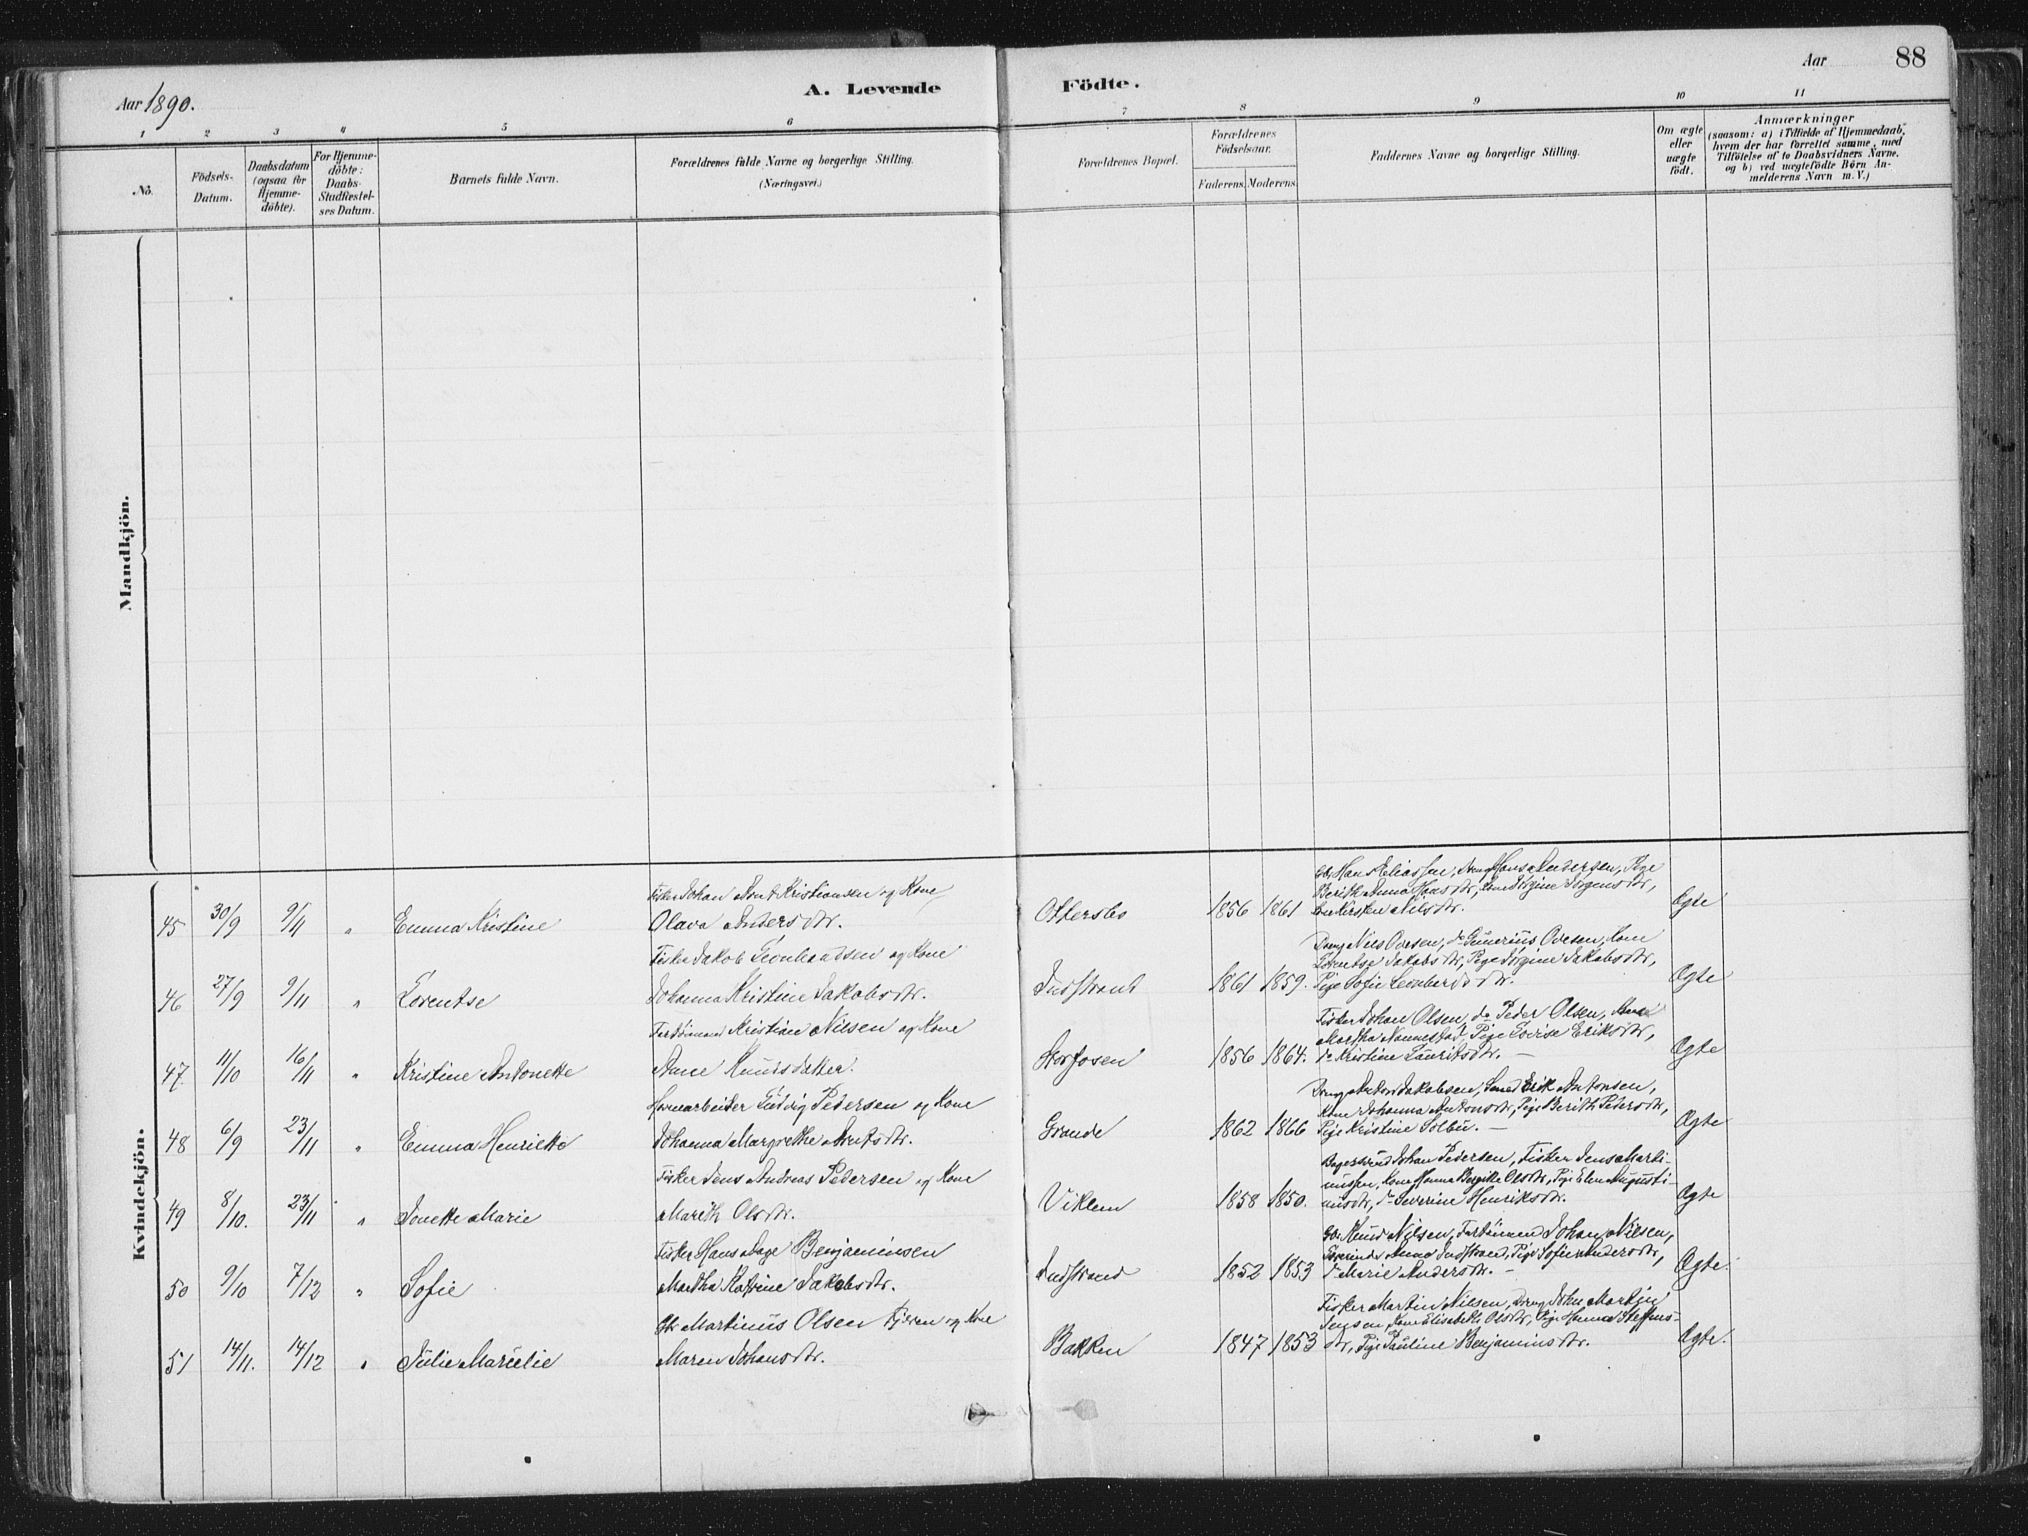 Aar 1890.
A. Levende
Födte.
Aar
88
1 2 3 4 5 6 7 8 9 10 11
No.
Födsels-
Datum.
Daabsdatum
(ogsaa for
Hjemme-
döbte).
For Hjemme-
döbte:
Daabs-
Stadfæstel-
ses Datum.
Barnets fulde Navn.
Forældrenes fulde Navne og borgerlige Stilling.
(Næringsvei.)
Forældrenes Bopæl.
Forældrenes
Födselsaar.
Faderens
Moderens
Faddernes Navne og borgerlige Stilling.
Om ægte
eller
uægte
födt.
Anmærkninger
(saasom: a) i Tilfælde af Hjemmedaab,
hvem der har forrettet samme, med
Tilföielse af to Daabsvidners Navne.
og b) ved uægtefödte Börn An-
melderens Navn m. V.)
Mandkjön.
Kvindekjön.
Fisker Johan Arnt Kristiansen og Kone
Gbr Hans Eliassen, Dreng Hans Andersen, Pige
Berith Anna Hansdtr, Kone Jörgine Jörgensdtr,
45 30/9 9/11 " Emma Kristine Olava Andersdtr. Ottersbo 1856 1861 Kirsten Nilsdtr. Ægte
Fisker Jakob Leonhardsen og Kone
Dreng Nils Ovesen, do Gunerius Ovesen, Kone
Lorentse Jakobsdtr, Pige Jörgine Jakobsdtr,
46 27/9 9/11 " Lorentse Johanna Kristine Jakobsdtr. Indstrand 1861 1859. Pige Sofie Leonhardsdtr. Ægte
Kristian Nilsen og Kone
Fisker Johan Olsen, do Peder Olsen, Kone
Martha Nannestad, Pige Lovise Eriksdtr,
47 11/10 16/11 " Kristine Antonette Anne Knudsdatter. Storfosen 1856 1864. do Kristine Lauritsdtr. — Ægte
Ludvig Pedersen og Kone
Dreng Anton Jakobsen, Smed Erik Antonsen,
Kone Johanna Antonsdtr, Pige Berith Petersdtr,
48 6/9 23/11 " Emma Henriette Johanna Margrethe Arntsdtr. Grande 1862 1866 Pige Kristine Solbu. — Ægte
Fisker Jens Andreas Pedersen og Kone
Johan Pedersen, Fisker Jens Marti-
nussen, Kone Hanna Bergitte Olsdtr, Pige Elen Augusti-
49 8/10. 23/11 " Jonette Marie Marith Olsdtr. Viklem 1858 1850. nusdtr, do Severine Henriksdtr. Ægte
Fisker Hans Aage Benjaminsen
Gbr Knud Nilsen, Johan Nilsen,
Anna Indstrand, Pige Sofie Andersdtr,
50 9/10 7/12 " Sofie Martha Katrine Jakobsdtr. Indstrand 1852 1853 do Marie Andersdtr. — Ægte.
Gbr Martinus Olsen og Kone
Fisker Martin Nilsen, Dreng John Martin
Jensen, Kone Elisabeth Olsdtr, Pige Hanna Steffens-
51 14/11. 14/12 " Julie Marcelie Maren Johansdtr. Bakken 1847 1853 dtr, Pige Pauline Benjaminsdtr. Ægte.